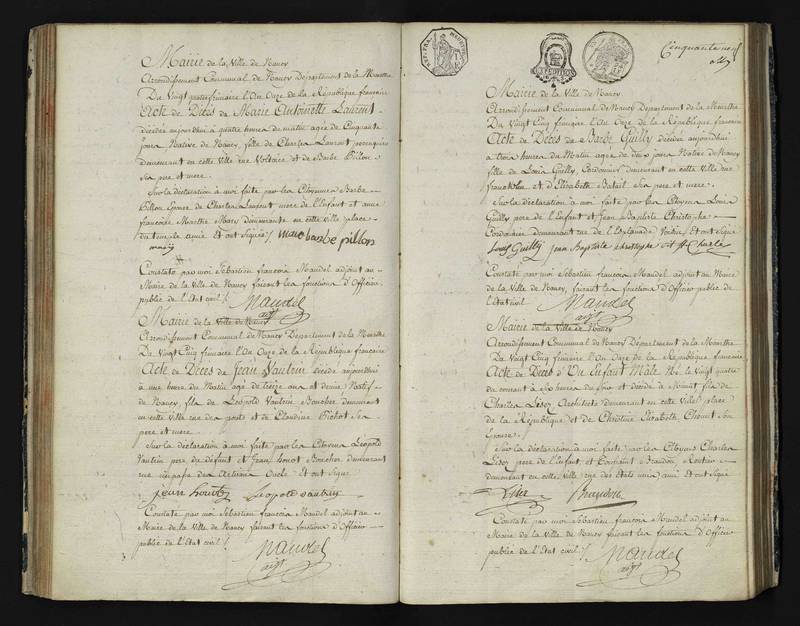 Mairie de la Ville de Nancy
Arrondissement Communal de Nancy Département de la Meurthe
Du Vingt quatre frimaire l'An Onze de la République française
Acte de Décès de Marie Antoinette Laurent
décédée aujourd'hui à quatre heures du matin agée de Cinquante
jours Native de Nancy, fille de Charles Laurent perruquier
demeurant en cette Ville rue Voltaire et de Barbe Pillon
Ses pere et mere
Sur la déclaration à moi faite par les Citoyennes Barbe
Pillon Epouse de Charles Laurent mere de l'Enfant et anne
françoise Marthe Marc demeurante en cette ville place
du temple amie Et ont Signé /. marc barbe pillon
Constaté par moi Sébastien francois Mandel adjoint au
Maire de la Ville de Nancy faisant les fonctions d'Officier
public de l'Etat civil /. Mandel
adjt
Mairie de la Ville de Nancy
Arrondissement Communal de Nancy Département de la Meurthe
Du Vingt Cinq frimaire l'An Onze de la République francaise
Acte de Décès de Jean Vautrin décédé aujourd'hui
à une heure du Matin agé de treize ans et demie Natif
de Nancy, fils de Léopold Vautrin Boucher demeurant
en cette ville rue des ponts et de Claudine Bichot Ses
pere et mere
Sur la déclaration à moi faite par les Citoyens Léopold
Vautrin pere du défunt et Jean Boucher demeurant
rue des Artisans Oncle Et ont Signé
Jean Leopold vautrin
Constaté par moi Sébastien francois Mandel adjoint au
Maire de la Ville de Nancy faisant les fonctions d'Officier
public de l'Etat civil /. Mandel
adjt
Cinquante neuf
Mairie de la Ville de Nancy
Arrondissement Communal de Nancy Département de la Meurthe
Du Vingt Cinq frimaire l'An Onze de la République francaise
Acte de Décès de Barbe Guilly décédée aujourd'hui
à trois heures du Matin agée de deux jours Native de Nancy
fille de Louis Guilly, Cordonnier demeurant en cette Ville rue
et d'Elisabeth Ses pere et mere.
Sur la déclaration à moi faite par les Citoyens Louis
Guilly pere de l'Enfant et Jean Baptiste Christophe
Cordonnier demeurant rue de l'Esplanade Voisin, Et ont Signé
Louis Guilly Jean Baptiste christophe
Constaté par moi Sébastien francois Mandel adjoint au Maire
de la Ville de Nancy, faisant les fonctions d'Officier public de
l'Etat civil Mandel
adjt
Mairie de la Ville de Nancy
Arrondissement Communal de Nancy Département de la Meurthe
Du Vingt Cinq frimaire l'An Onze de la République francaise
Acte de Décès d'Un Enfant Mâle Né le Vingt quatre
du courant à Six heures du Soir et décédé à Minuit fils de
Charles Architecte demeurant en cette Ville place
de la République et de Christine Elisabeth Son
Epouse.
Sur la déclaration à moi faite par les Citoyens Charles
pere de l'Enfant et
demeurant en cette Ville rue des Etats unis ami Et ont Signé
Constaté par moi Sébastien francois Mandel adjoint au
Maire de la Ville de Nancy faisant les fonctions d'Officier
public de l'Etat civil /. Mandel
adjt